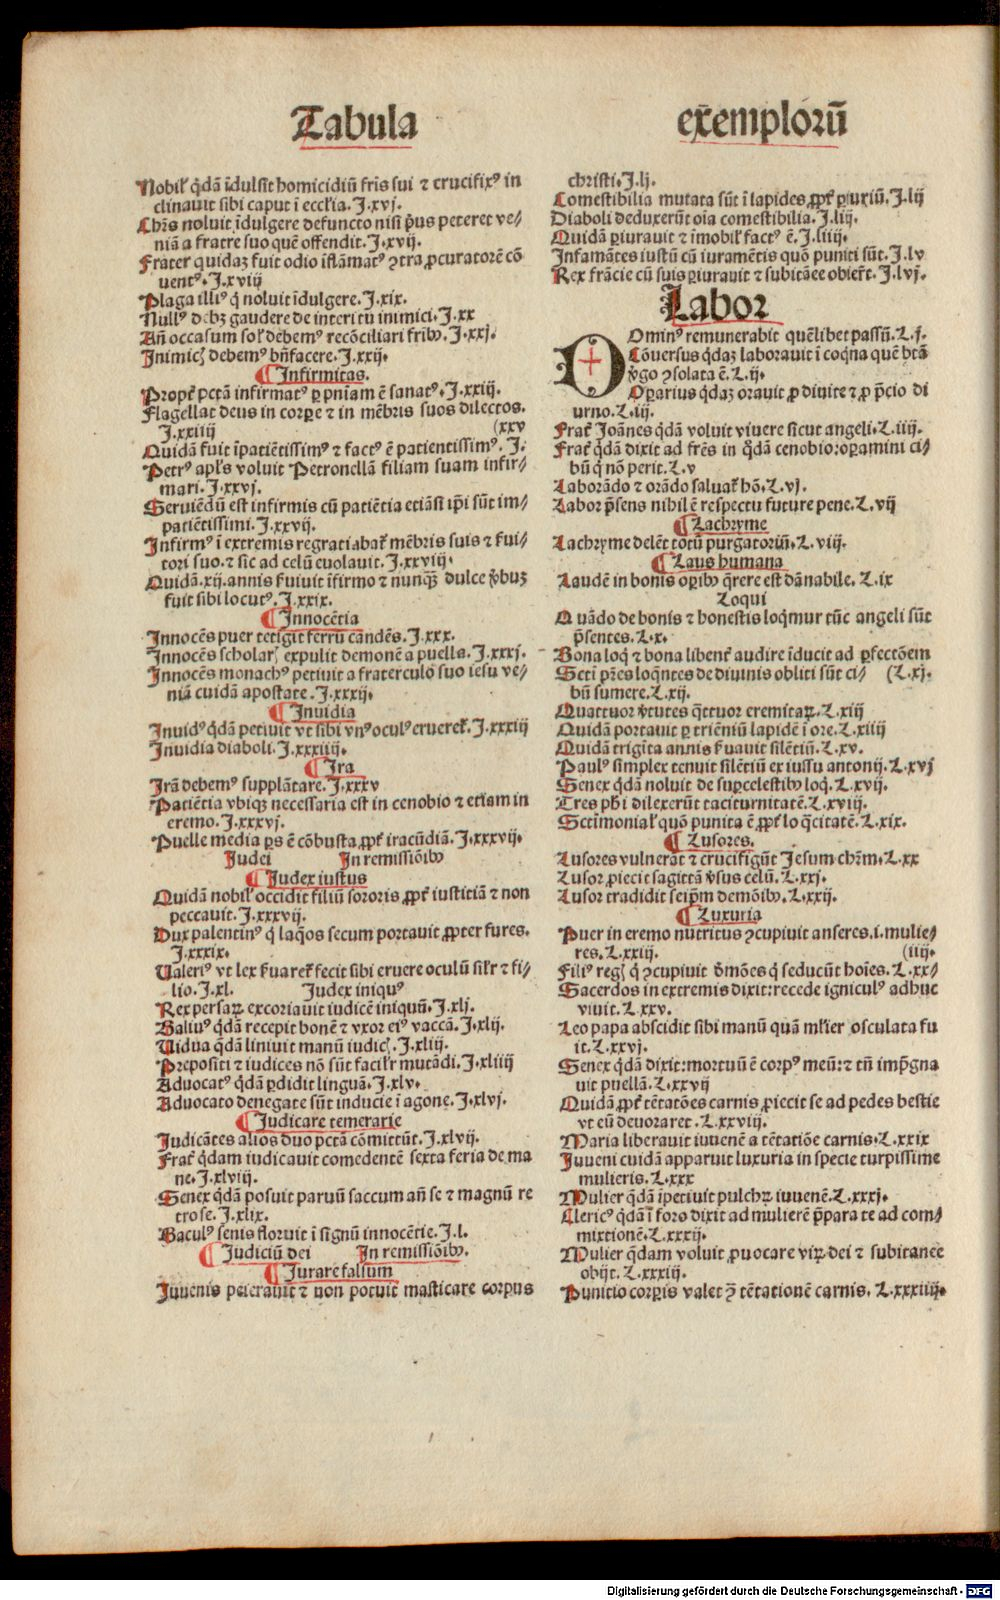 Tabula exemploꝝ
Nobil' q̄dã ĩdulsit homicidiũ fr̃is sui ⁊ crucifixꝰ in
clinauit sibi caput ĩ eccl'ia. J.xvj.
Chr̃s noluit ĩdulgere defuncto nisi p̃us peteret ve⸗
niã a fratre suo quẽ offendit. J.xvij.
Frater quidaz fuit odio ĩflãmatꝰ ↄtra ꝓcuratorẽ cõ
uentꝰ. J.xviij
Plaga illiꝰ q̇ noluit ĩdulgere. J.xix.
Nullꝰ debꝫ gaudere de interitu inimici. J.xx
Añ occasum sol' debemꝰ recõciliari frĩbꝰ. J.xxj.
Jnimicꝭ debemꝰ bñfacere. J.xxij.
¶ Jnfirmitas.
Propt' pctã infirmatꝰ ꝑ pniam ẽ sanatꝰ. J.xxiij.
Flagellat deus in corpꝑe ⁊ in mẽbris suos dilectos.
J.xxiiij (xxv
Quidã fuit ĩpatiẽtissimꝰ ⁊ factꝰ ẽ patientissimꝰ. J.
Petrꝰ apl's voluit Petronellã filiam suam infir⸗
mari. J.xxvj.
Seruiẽdũ est infirmis cũ patiẽtia etiãsi ip̃i sũt im⸗
patiẽtissimi. J.xxvij.
Jnfirmꝰ ĩ extremis regratiabat' mẽbris suis ⁊ sui⸗
tori suo. ⁊ sic ad celũ euolauit. J.xxviij.
Quidã.xij.annis s'uiuit ĩfirmo ⁊ nunqꝫ dulce v̓buꝫ
fuit sibi locutꝰ. J.xxix.
¶ Jnnocẽtia
Jnnocẽs puer tetigit ferrũ candẽs. J.xxx.
Jnnocẽs scholarꝭ expulit demonẽ a puella. J.xxxj.
Jnnocẽs monachꝰ petiuit a fraterculo suo iesu ve⸗
niã cuidã apostate. J.xxxij.
¶ Jnuidia
Jnuidꝰ q̄dã petiuit vt sibi vnꝰ oculꝰ erueret'. J.xxxiij
Jnuidia diaboli. J.xxxiiij.
¶ Jra
Jrã debemꝰ supplãtare. J.xxxv
Patiẽtia vbiqꝫ necessaria est in cenobio ⁊ etiam in
eremo. J.xxxvj.
Puelle media ꝑs ẽ cõbusta ꝓpt' iracũdiã. J.xxxvij.
Judei Jn remissiõibꝰ
¶ Judex iustus
Quidã nobil' occidit filiũ sororis ꝓpt' iustitiã ⁊ non
peccauit. J.xxxvij.
Dux palentinꝰ q̇ laq̃os secum portauit ꝓpter fures.
J.xxxix.
Valeriꝰ vt lex s'uaret' fecit sibi eruere oculũ sil'r ⁊ fi⸗
lio. J.xl. Judex iniquꝰ
Rex persaꝝ excoriauit iudicẽ iniquũ. J.xlj.
Baliuꝰ q̄dã recepit bonẽ ⁊ vxor eiꝰ vaccã. J.xlij.
Vidua q̄dã liniuit manũ iudicꝭ. J.xliij.
Prepositi ⁊ iudices nõ sũt facil'r mutãdi. J.xliiij
Aduocatꝰ q̄dã ꝑdidit linguã. J.xlv.
Aduocato denegate sũt inducie ĩ agone. J.xlvj.
¶ Judicare temerarie
Judicãtes alios duo pctã cõmittũt. J.xlvij.
Frat' q̄dam iudicauit comedentẽ sexta feria de ma
ne. J.xlviij.
Senex q̄dã posuit paruũ saccum añ se ⁊ magnũ re
tro se. J.xlix.
Baculꝰ senis floruit ĩ signũ innocẽtie. J.l.
¶ Judiciũ dei Jn remissiõibꝰ.
¶ Jurare falsum
Juuenis peierauit ⁊ non potuit masticare corpus
christi. J.lj.
Comestibilia mutata sũt ĩ lapides ꝓpt' ꝑiuriũ. J.lij
Diaboli deduxerũt oĩa comestibilia. J.liij.
Quidã ꝑiurauit ⁊ ĩmobil' factꝰ ẽ. J.liiij.
Jnfamãtes iustũ cũ iuramẽtis quõ puniti sũt. J.lv
Rex frãcie cũ suis ꝑiurauit ⁊ subitãee obier̃t. J.lvj.
Labor
Ominꝰ remunerabit quẽlibet passũ. L.j.
Cõuersus q̄daz laborauit ĩ coq̃na quẽ btã
v̓go ↄsolata ẽ. L.ij.
Oꝑarius q̄daz orauit ꝓ diuite ⁊ ꝓ p̃cio di
urno. L.iij.
Frat' Joãnes q̄dã voluit viuere sicut angeli. L.iiij.
Frat' q̄dã dixit ad fr̃es in q̄dã cenobio:oꝑamini ci⸗
bũ q̇ nõ perit. L.v
Laborãdo ⁊ orãdo saluat' hõ. L.vj.
Labor p̃sens nihil ẽ respectu future pene. L.vij
¶ Lachryme
Lachryme delẽt totũ purgatoriũ. L.viij.
¶ Laus humana
Laudẽ in bonis oꝑibꝰ q̃rere est dãnabile. L.ix
Loqui
Quãdo de bonis ⁊ honestis loq̃mur tũc angeli sũt
p̃sentes. L.x.
Bona loq̇ ⁊ bona libent' audire ĩducit ad ꝑfectõem
Scti p̃res loq̃ntes de diuinis obliti sũt ci⸗ (L.xj.
bũ sumere. L.xij.
Quattuor v̓tutes q̃ttuor eremitaꝝ. L.xiij
Quidã portauit ꝑ triẽniũ lapidẽ ĩ ore. L.xiiij
Quidã trigĩta annis s'uauit silẽtiũ. L.xv.
Paulꝰ simplex tenuit silẽtiũ ex iussu antonij. L.xvj
Senex q̄dã noluit de suꝑcelestibꝰ loq̇. L.xvij.
Tres ph̃i dilexerũt taciturnitatẽ. L.xviij.
Sctimonial' quõ punita ẽ ꝓpt' loq̃citatẽ. L.xix.
¶ Lusores.
Lusores vulnerãt ⁊ crucifigũt Jesum chr̃m. L.xx
Lusor ꝓiecit sagittã v̓sus celũ. L.xxj.
Lusor tradidit seip̃m demõibꝰ. L.xxij.
¶ Luxuria
Puer in eremo nutritus ↄcupiuit anseres.i.mulie⸗
res. L.xxiij. (iij.
Filiꝰ regꝭ q̇ ↄcupiuit d̓mões q̇ seducũt hoĩes. L.xx⸗
Sacerdos in extremis dixit:recede igniculꝰ adhuc
viuit. L.xxv.
Leo papa abscidit sibi manũ quã ml'ier osculata fu
it. L.xxvj.
Senex q̄dã dixit:mortuũ ẽ corpꝰ meũ:⁊ tñ imp̃gna
uit puellã. L.xxvij
Quidã ꝓpt' tẽtatões carnis ꝓiecit se ad pedes bestie
vt eũ deuoraret. L.xxviij.
Maria liberauit iuuenẽ a tẽtatiõe carnis. L.xxix
Juueni cuidã apparuit luxuria in specie turpissime
mulieris. L.xxx
Mulier q̄dã ĩpetiuit pulchꝝ iuuenẽ. L.xxxj.
Clericꝰ q̄dã ĩ foro dixit ad mulierẽ p̃para te ad com⸗
mixtionẽ. L.xxxij.
Mulier q̄dam voluit ꝓuocare viꝝ dei ⁊ subitanee
obijt. L.xxxiij.
Punitio corꝑis valet ↄ̃ tẽtationẽ carnis. L.xxxiiij.
Digitalisierung gefördert durch die Deutsche Forschungsgemeinschaft - DFG